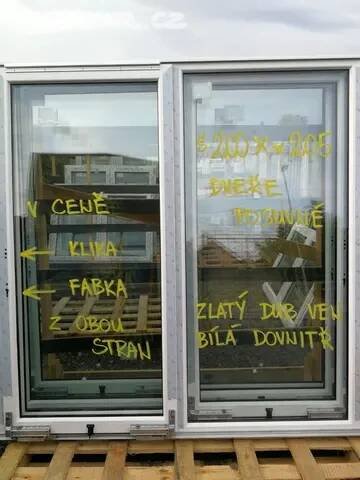 V CENĚ
← KLIKA
← FABKA
Z OBOU
STRAN
Š 200 X V 205
DVEŘE
POSUVNÉ
ZLATÝ DUB VEN
BÍLÁ DOVNITŘ